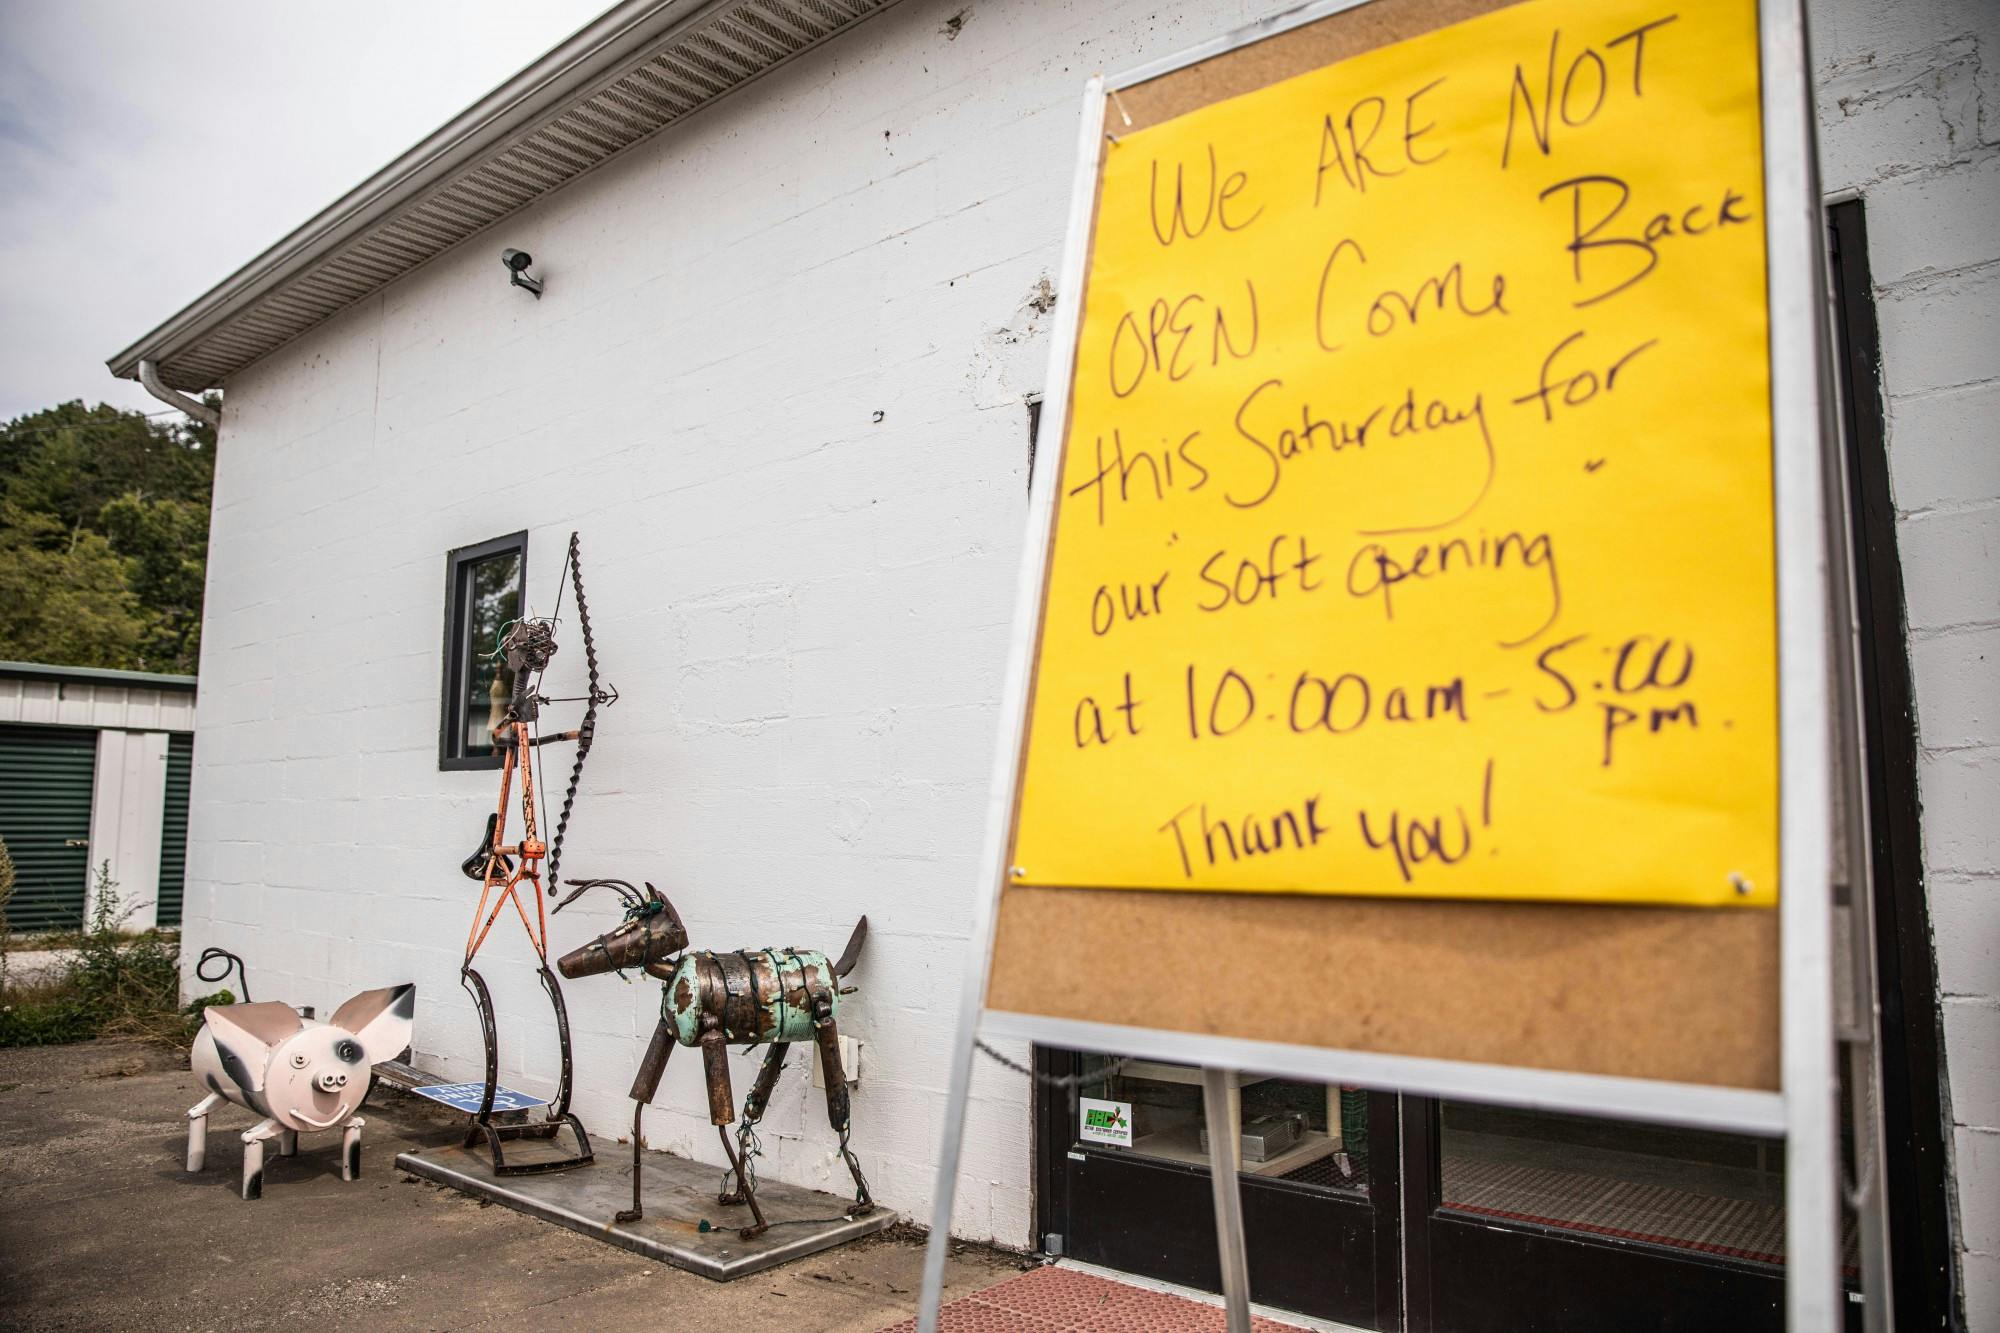 We ARE NOT
OPEN. Come Back
this Saturday for
our "soft opening"
at 10:00am - 5:00
pm.
Thank you!
ABC